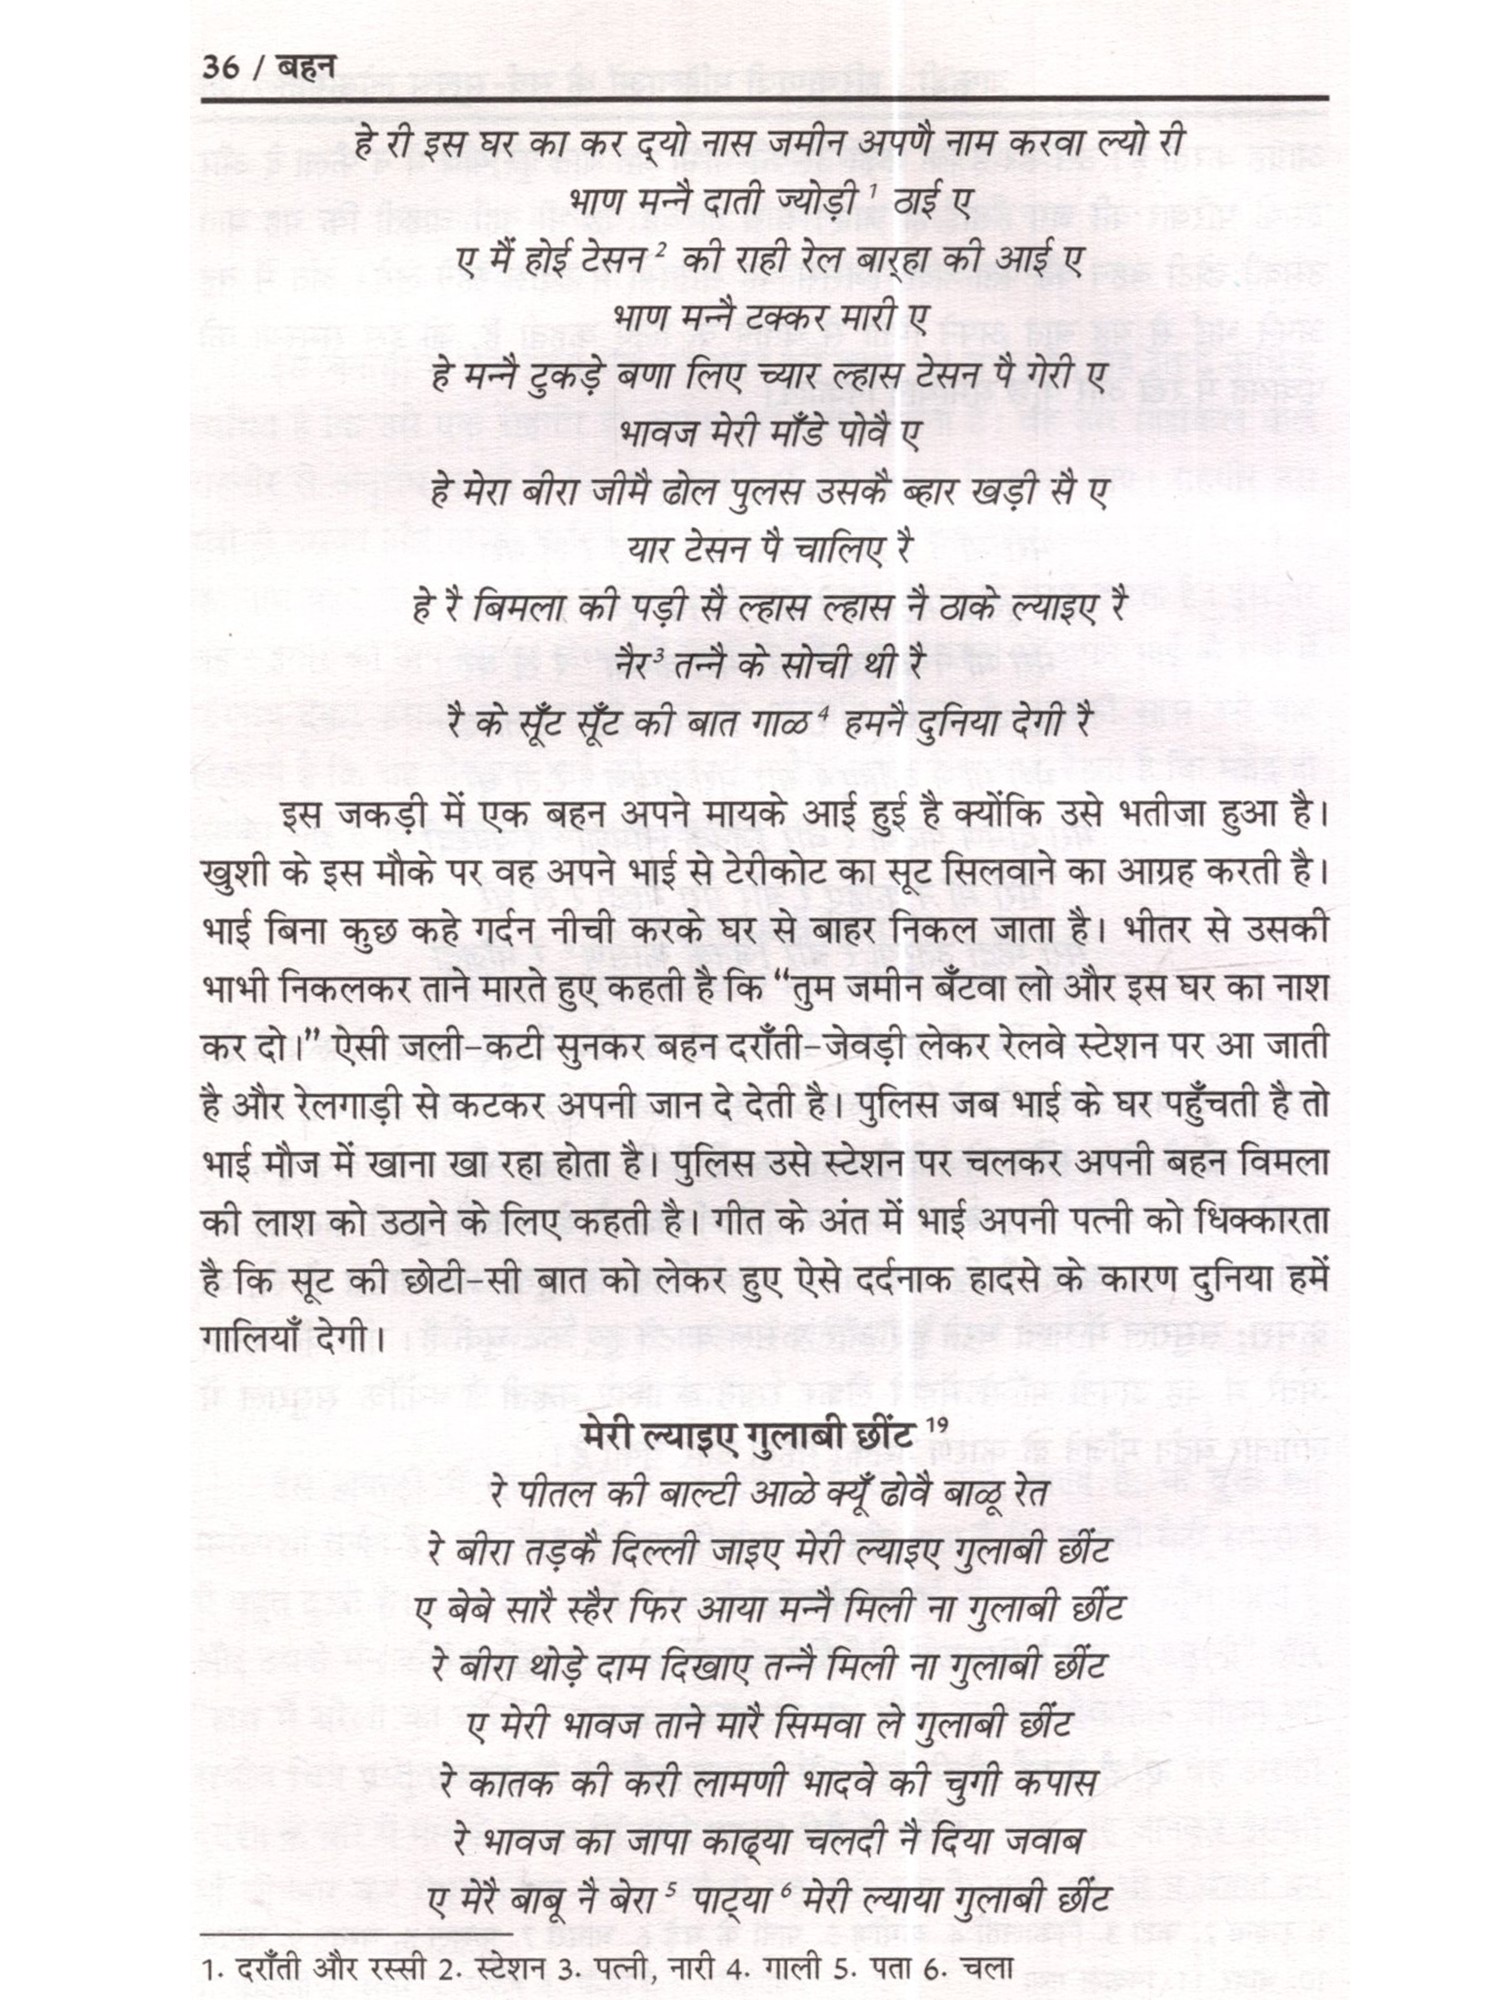 36 / बहन
हे री इस घर का कर द्‌यो नास जमीन अपणै नाम करवा ल्यो री
भाण मन्नै दाती ज्योड़ी 1 ठाई ए
ए मैं होई टेसन 2 की राही रेल बार्‌हा की आई ए
भाण मन्नै टक्कर मारी ए
हे मन्नै टुकड़े बणा लिए च्यार ल्हास टेसन पै गेरी ए
भावज मेरी माँडे पोवै ए
हे मेरा बीरा जीमै ढोल पुलस उसकै ब्हार खड़ी सै ए
यार टेसन पै चालिए रै
हे रै बिमला की पड़ी सै ल्हास ल्हास नै ठाके ल्याइए रै
नैर 3 तन्नै के सोची थी रै
रै के सूँट सूँट की बात गाळ 4 हमनै दुनिया देगी रै
इस जकड़ी में एक बहन अपने मायके आई हुई है क्योंकि उसे भतीजा हुआ है।
खुशी के इस मौके पर वह अपने भाई से टेरीकोट का सूट सिलवाने का आग्रह करती है।
भाई बिना कुछ कहे गर्दन नीची करके घर से बाहर निकल जाता है। भीतर से उसकी
भाभी निकलकर ताने मारते हुए कहती है कि “तुम जमीन बँटवा लो और इस घर का नाश
कर दो।” ऐसी जली-कटी सुनकर बहन दराँती-जेवड़ी लेकर रेलवे स्टेशन पर आ जाती
है और रेलगाड़ी से कटकर अपनी जान दे देती है। पुलिस जब भाई के घर पहुँचती है तो
भाई मौज में खाना खा रहा होता है। पुलिस उसे स्टेशन पर चलकर अपनी बहन विमला
की लाश को उठाने के लिए कहती है। गीत के अंत में भाई अपनी पत्नी को धिक्कारता
है कि सूट की छोटी-सी बात को लेकर हुए ऐसे दर्दनाक हादसे के कारण दुनिया हमें
गालियाँ देगी।
मेरी ल्याइए गुलाबी छींट 19
रे पीतल की बाल्टी आळे क्यूँ ढोवै बाळू रेत
रे बीरा तड़कै दिल्ली जाइए मेरी ल्याइए गुलाबी छींट
ए बेबे सारै स्हैर फिर आया मन्नै मिली ना गुलाबी छींट
रे बीरा थोड़े दाम दिखाए तन्नै मिली ना गुलाबी छींट
ए मेरी भावज ताने मारै सिमवा ले गुलाबी छींट
रे कातक की करी लामणी भादवे की चुगी कपास
रे भावज का जापा काढ्‌या चलदी नै दिया जवाब
ए मेरै बाबू नै बेरा 5 पाट्‌या 6 मेरी ल्याया गुलाबी छींट
1. दराँती और रस्सी 2. स्टेशन 3. पत्नी, नारी 4. गाली 5. पता 6. चला